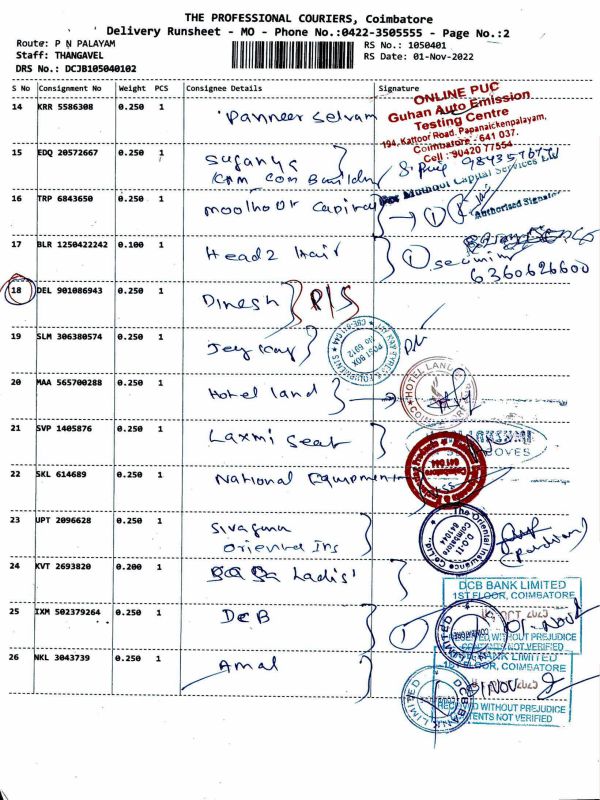 THE PROFESSIONAL COURIERS, Coimbatore
Delivery Runsheet - MO - Phone No.:0422-3505555 - Page No.:2
Route: P N PALAYAM
RS No.: 1050401
Staff: THANGAVEL
RS Date: 01-Nov-2022
DRS No.: DCJB105040102
S No Consignment No Weight PCS Consignee Details Signature
14 KRR 5586308 0.250 1 Panneer Selvam
ONLINE PUC
Guhan Auto Emission
Testing Centre
194, Kattoor Road, Papanaickenpalayam,
Coimbatore - 641 037.
Cell : 90420 77554
15 EDQ 20572667 0.250 1 Suganya
Com Builder
For Muthoot Capital Services Ltd
16 TRP 6843650 0.250 1 Moolhoor Capital
Authorised Signatory
17 BLR 1250422242 0.100 1 Head2 Hair
6360626600
18 DEL 901086943 0.250 1 Dinesh P/S
19 SLM 306380574 0.250 1 Jey Kay
POST BOX
No 6912
20 MAA 565700288 0.250 1 Hotel land
HOTEL LAND
21 SVP 1405876 0.250 1 Laxmi Seat
22 SKL 614689 0.250 1 National Equipment
Coimbatore
641 044
23 UPT 2096628 0.250 1 Sivaguru
Oriental Ins
The Oriental Insurance Co Ltd
D.O-II
Coimbatore
641044
24 KVT 2693820 0.200 1 Ladis'
DCB BANK LIMITED
1ST FLOOR, COIMBATORE
25 IXM 502379264 0.250 1 DCB
01-Nov
RECEIVED WITHOUT PREJUDICE
CONTENTS NOT VERIFIED
26 NKL 3043739 0.250 1 Amal
DCB BANK LIMITED
1ST FLOOR, COIMBATORE
01 NOV
RECEIVED WITHOUT PREJUDICE
CONTENTS NOT VERIFIED
DCB BANK LIMITED